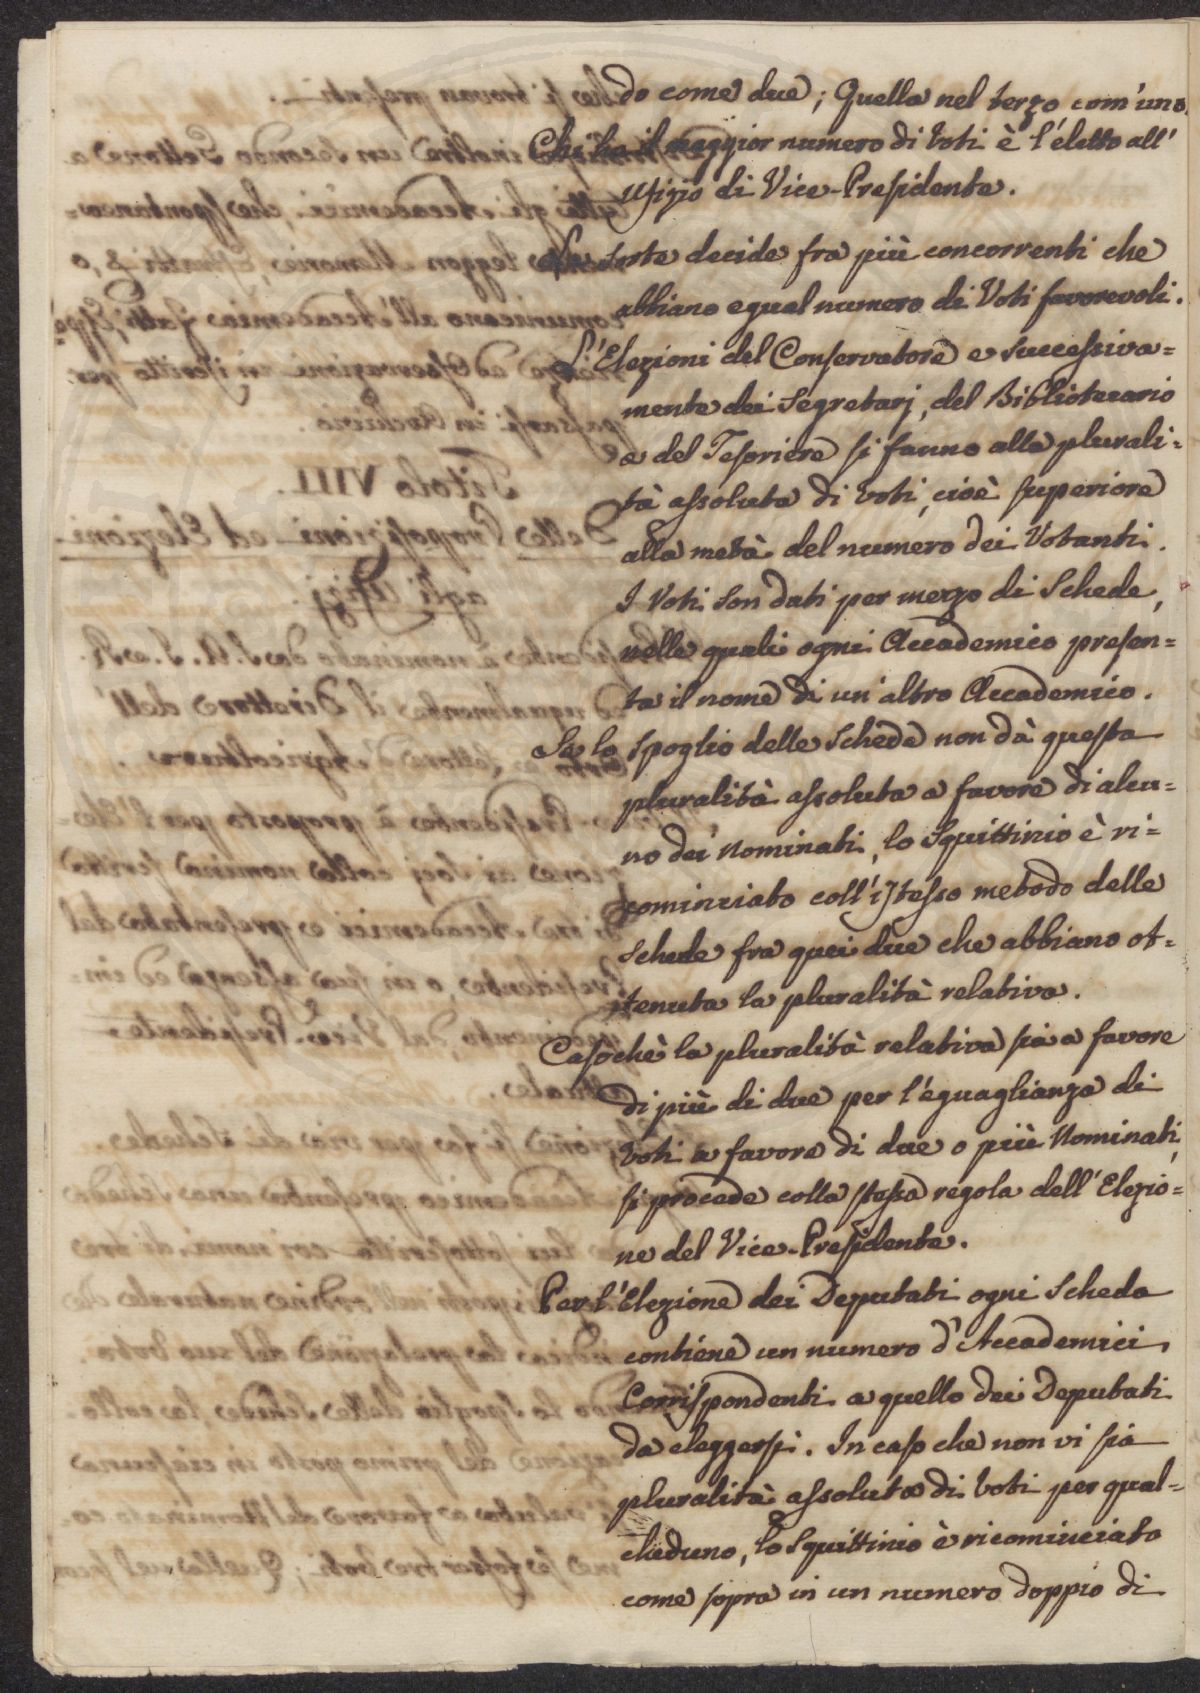 do come due; Quella nel terzo com'uno.
Chi ha il maggior numero di Voti è l'eletto all'
Ufizio di Vice-Presidente.
La sorte decide fra più concorrenti che
abbiano egual numero di Voti favorevoli.
L'Elezioni del Conservatore e successiva=
mente dei Segretarj, del Bibliotecario
e del Tesoriere si fanno alla plurali=
tà assoluta di Voti, cioè superiore
alla metà del numero dei Votanti.
I Voti son dati per mezzo di Schede,
nelle quali ogni Accademico presen=
ta il nome di un'altro Accademico.
Se lo spoglio delle schede non dà questa
pluralità assoluta a favore di alcu=
no dei Nominati, lo Squittinio è ri=
cominciato coll'istesso metodo delle
schede fra quei due che abbiano ot=
tenuta la pluralità relativa.
Casochè la pluralità relativa sia a favore
di più di due per l'eguaglianza di
Voti a favore di due o più Nominati,
si procede colla stessa regola dell'Elezio=
ne del Vice-Presidente.
Per l'Elezione dei Deputati ogni Scheda
contiene un numero d'Accademici
Corrispondenti a quello dei Deputati
da eleggersi. In caso che non vi sia
pluralità assoluta di Voti per qual=
cheduno, lo Squittinio è ricominciato
come sopra in un numero doppio di